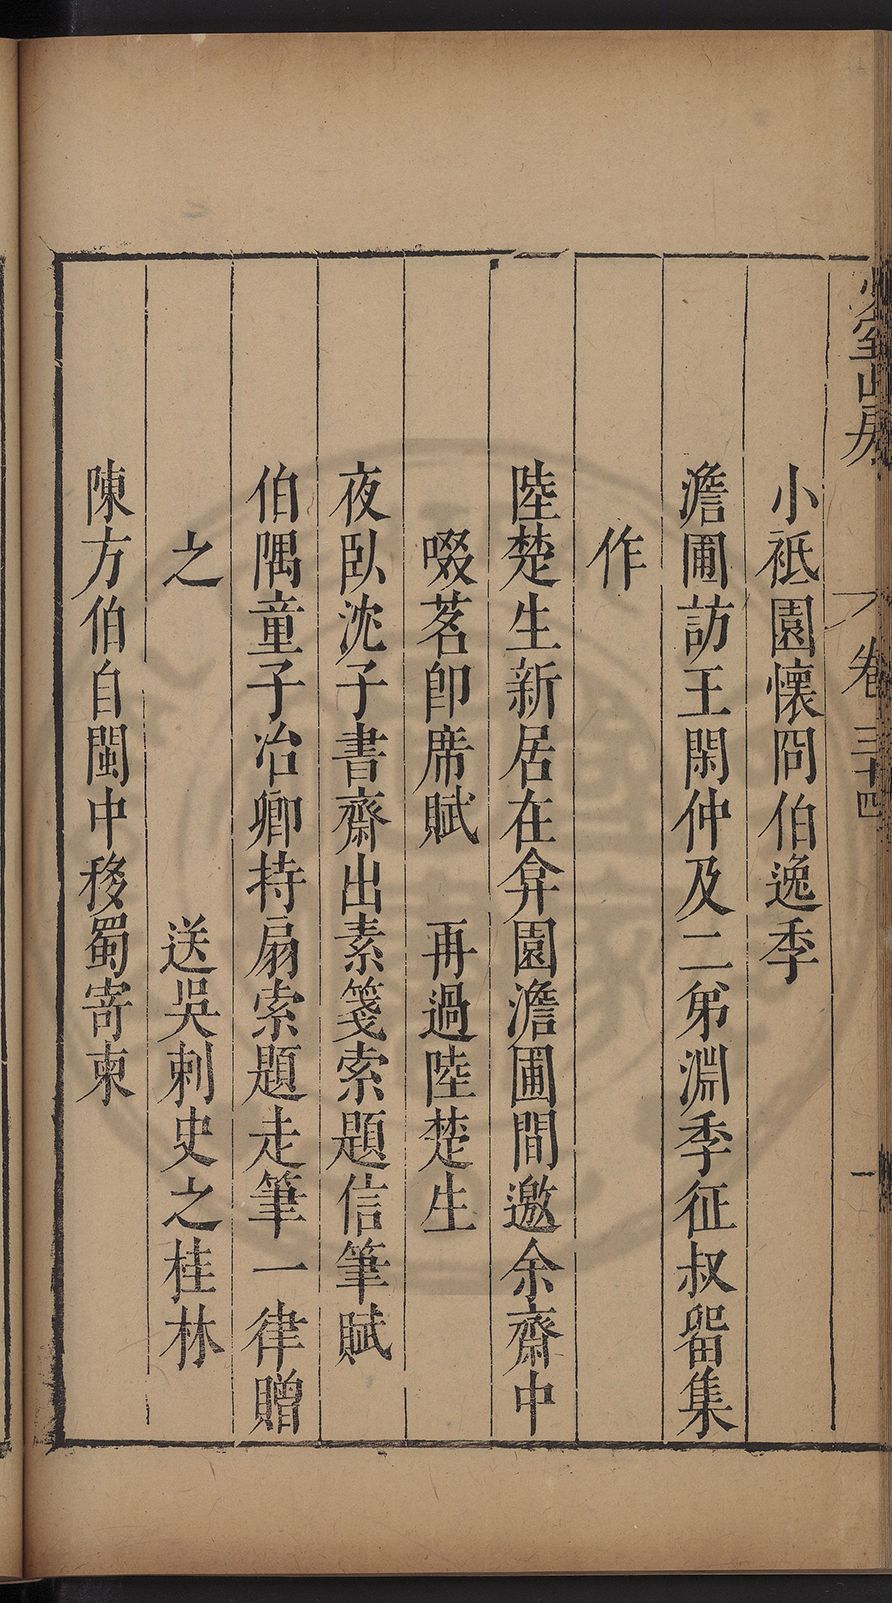 卷三十四
一
小祗園懷冏伯逸季
澹圃訪王閑仲及二弟淵季征叔留集
作
陸楚生新居在弇園澹圃間邀余齋中
啜茗即席賦　再過陸楚生
夜臥沈子書齋出素箋索題信筆賦
伯隅童子冶卿持扇索題走筆一律贈
之　送吳刺史之桂林
陳方伯自閩中移蜀寄柬